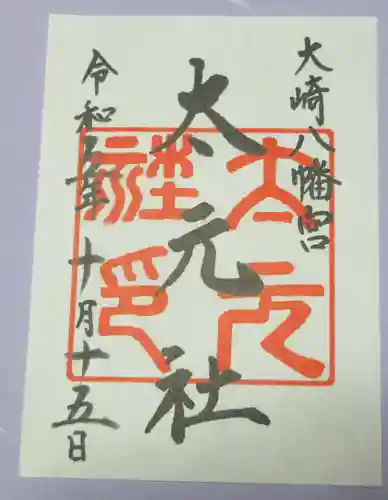 大崎八幡宮
太元社
令和五年 十月十五日
太元社印